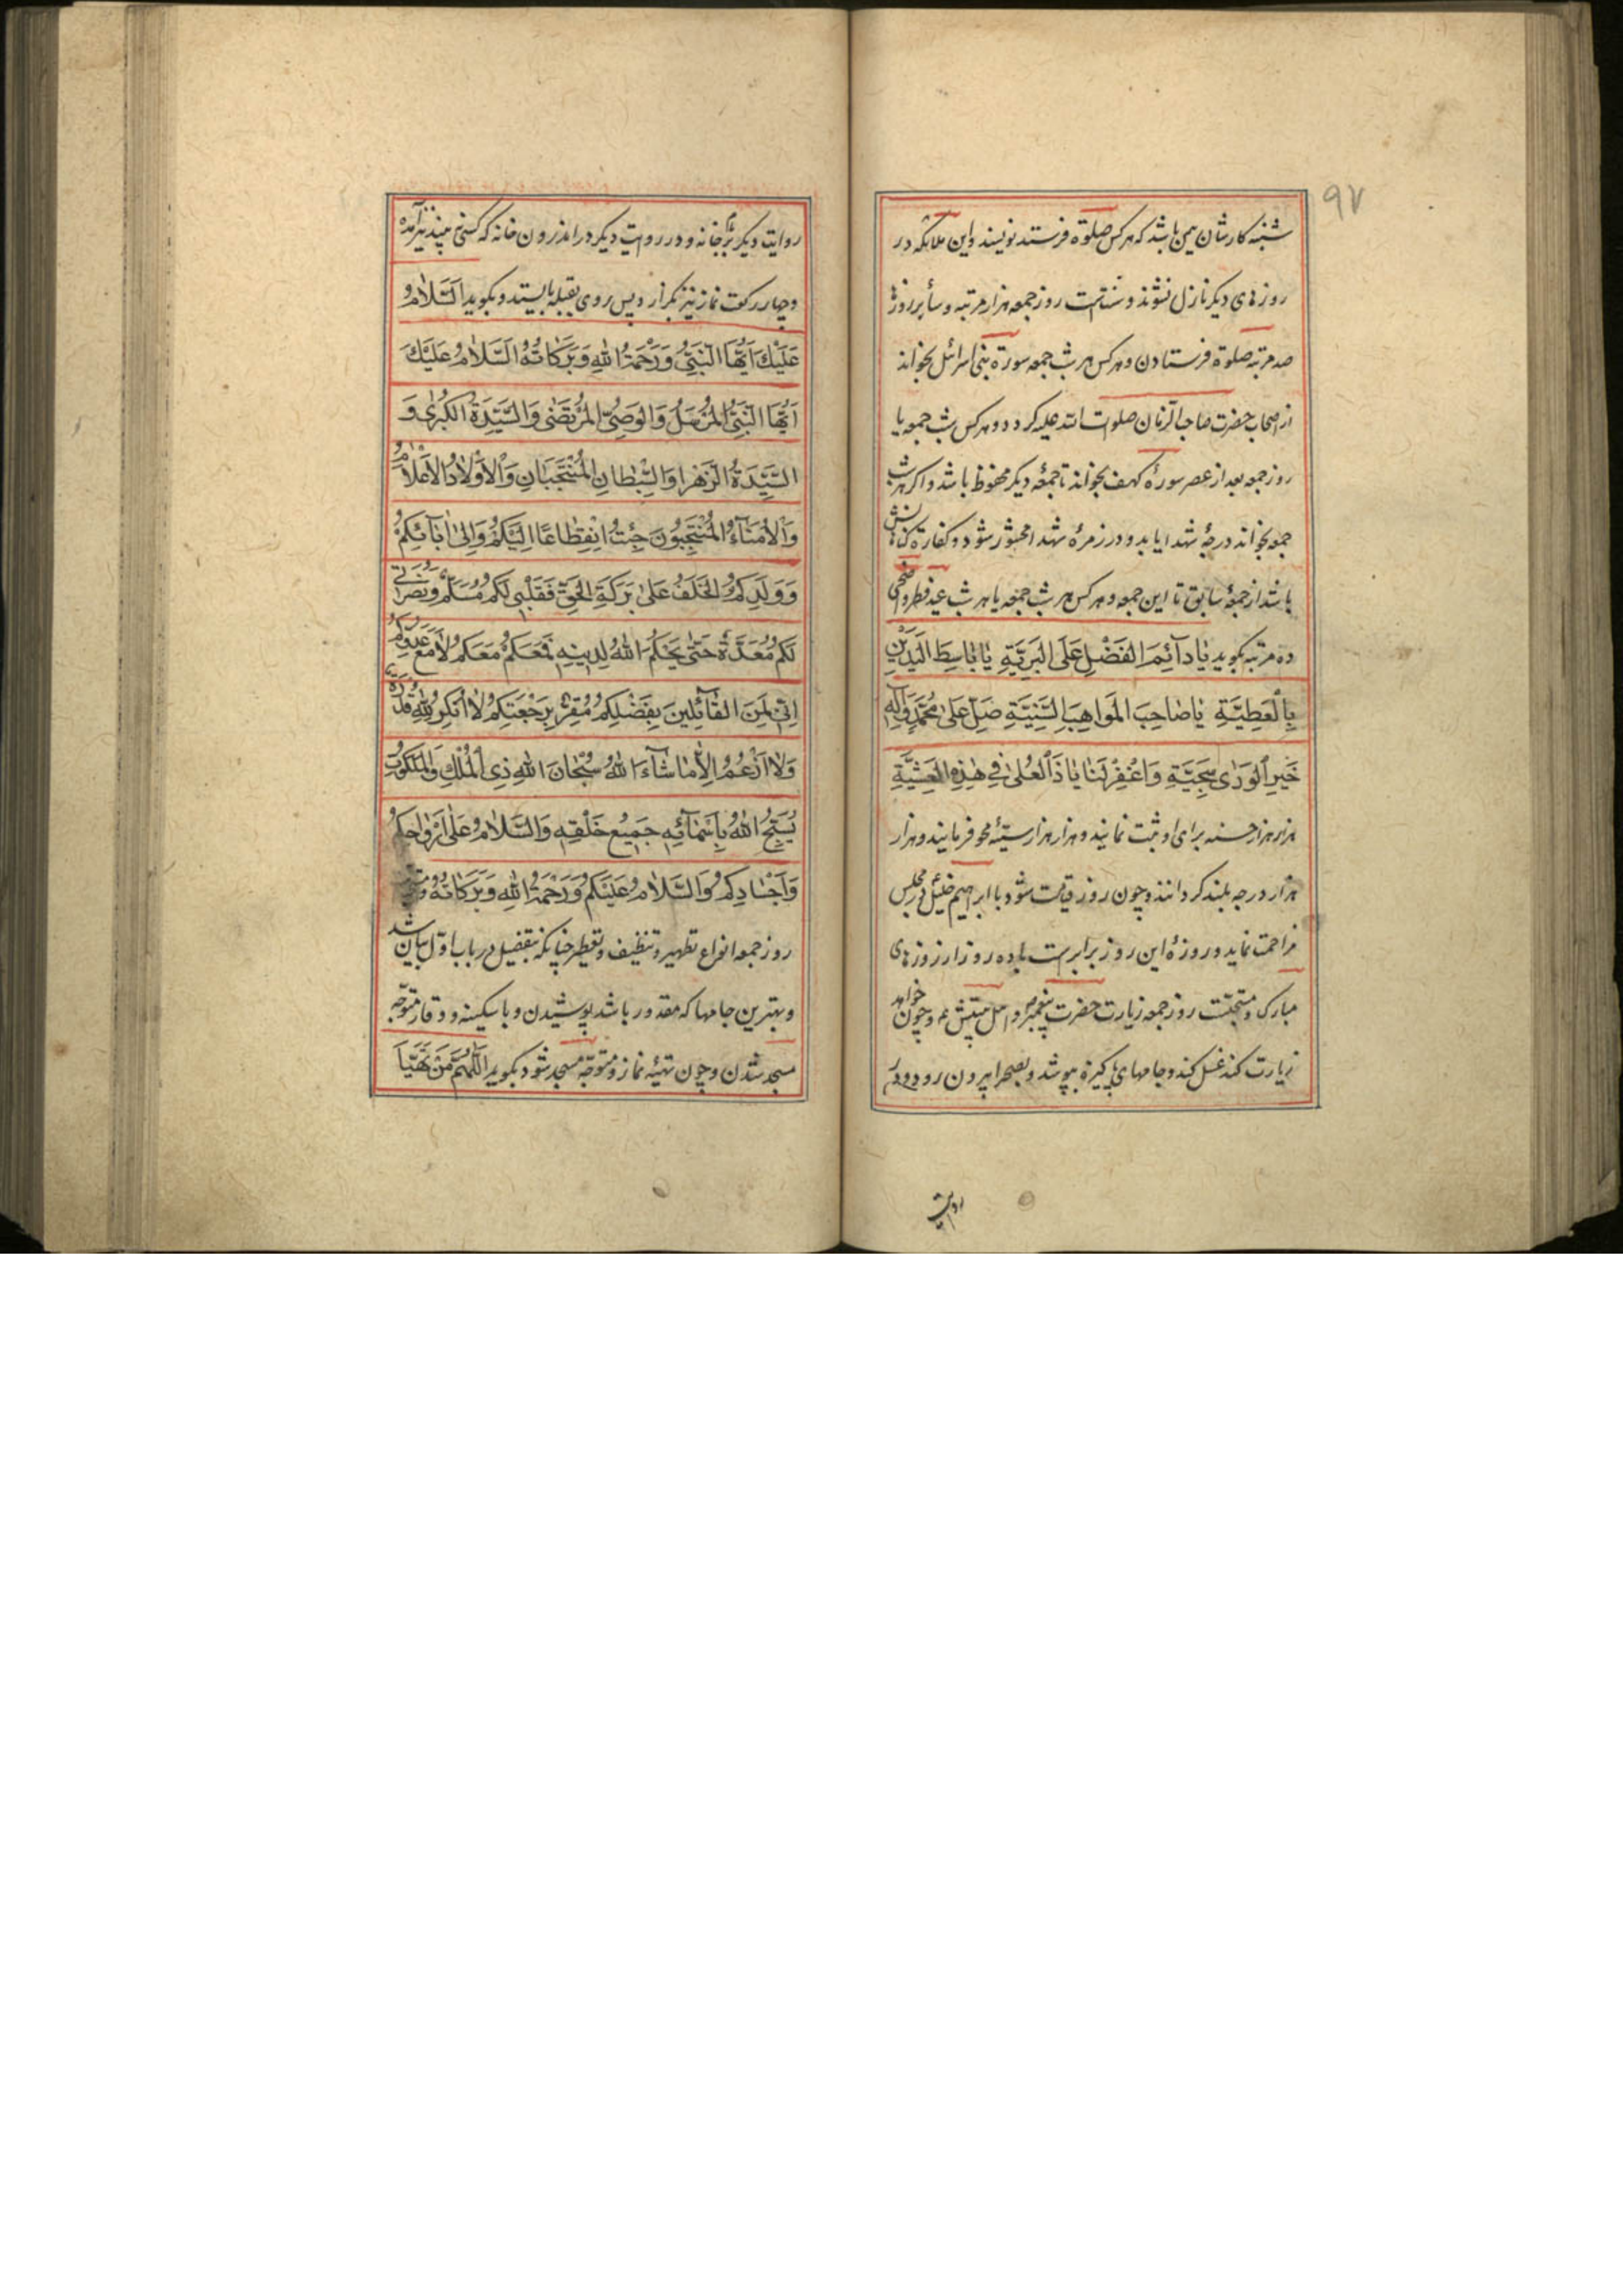 ۹۷
شنبه کارشان همین باشد که هر کس صلوة فرستد نویسند و این ملائکه در
روزهای دیگر نازل نشوند و سنت است روز جمعه هزار مرتبه و سایر روزها
صد مرتبه صلوة فرستادن و هر کس هر شب جمعه سورة بنی اسرائل بخواند
از اصحاب حضرت صاحب الزمان صلوات الله علیه کردد و هر کس شب جمعه یا
روز جمعه بعد از عصر سورهٔ کهف بخواند تا جمعهٔ دیکر محفوظ باشد و اکر هر شب
جمعه بخواند درجهٔ شهدا یابد و در زمرهٔ شهدا محشور شود و کفارة کناهانش
باشد از جمعهٔ سابق تا این جمعه و هر کس هر شب جمعه یا هر شب عید فطر و اضحی
ده مرتبه بکوید یَا دَآئِمَ الفَضْلِ عَلَی البَرِیَّةِ یَا بَاسِطَ الیَدَیْنِ
بِالْعَطِیَّةِ یَا صَاحِبَ المَوَاهِبِ السَّنِیَّةِ صَلِّ عَلیٰ مُحَمَّدٍ وَآلِهِ
خَیرِ الوَرٰی سَجِیَّةِ وَاغْفِرْ لَنَا یَا ذَا العُلیٰ فِی هٰذِهِ العَشِیَّةِ
هزار هزار حسنه برای او ثبت نمایند و هزار هزار سیئه محو فرمایند و هزار
هزار درجه بلند کردانند و چون روز قیامت شود با ابراهیم خلیل در مجلس
مزاحمت نماید و روزهٔ این روز برابرست با ده روز از روزهای
مبارک و مستحبّست روز جمعه زیارت حضرت پیغمبر و اهل بیتش ع و چون خواهد
زیارت کند غسل کند و جامهای پاکیزه بپوشد و بصحرا بیرون رود و در
روایت
روایت دیکر بر بام خانه و در روایت دیکر در اندرون خانه که کسی نه بیند نیز آمده
و چهار رکعت نماز نیز بکزارد پس روی بقبله بایستد و بکوید اَلسَّلَامُ
عَلَیْکَ اَیُّهَا النَّبِیُّ وَرَحْمَةُ اللهِ وَبَرَکَاتُهُ اَلسَّلَامُ عَلَیْکَ
اَیُّهَا النَّبِیُّ المُرْسَلُ وَالوَصِیُّ المُرْتَضٰی وَالسَّیِّدَةُ الکُبْرٰی وَ
السَّیِّدَةُ الزَّهْرَا وَالسِّبْطَانِ المُنْتَجَبَانِ وَالْاَوْلَادُ الْاَعْلَامُ
وَالْاُمَنَآءُ المُنْتَجَبُونَ جِئْتُ اِنْقِطَاعًا اِلَیْکُمْ وَاِلیٰ اٰبَآئِکُمْ
وَوَلَدِکُمُ الخَلَفِ عَلیٰ بَرَکَةِ الحَقِّ فَقَلْبِی لَکُمْ مُسَلِّمٌ وَنُصْرَتِی
لَکُمْ مُعَدَّةٌ حَتّٰی یَحْکُمَ اللهُ لِدِینِهِ فَمَعَکُمْ مَعَکُمْ لَا مَعَ عَدُوِّکُمْ
اِنِّی لَمِنَ القَآئِلِینَ بِفَضْلِکُمْ مُقِرٌّ بِرَجْعَتِکُمْ لَا اُنْکِرُ لِلّٰهِ قُدْرَةً
وَلَا اَزْعُمُ اِلَّا مَا شَآءَ اللهُ سُبْحَانَ اللهِ ذِی الْمُلْکِ وَالْمَلَکُوتِ
یُسَبِّحُ اللهَ بِاَسْمَآئِهِ جَمِیعُ خَلْقِهِ وَالسَّلَامُ عَلیٰ اَرْوَاحِکُمْ
وَاَجْسَادِکُمْ وَالسَّلَامُ عَلَیْکُمْ وَرَحْمَةُ اللهِ وَبَرَکَاتُهُ و
روز جمعه انواع تطهیر و تنظیف و تعطیر چنانکه بتفصیل در باب اول بیان شد
و بهترین جامها که مقدور باشد پوشیدن و با سکینه و وقار متوجّه
مسجد شدن و چون تهیّهٔ نماز و متوجّه مسجد شود بکوید اَللّٰهُمَّ مَنْ تَهَیَّأَ